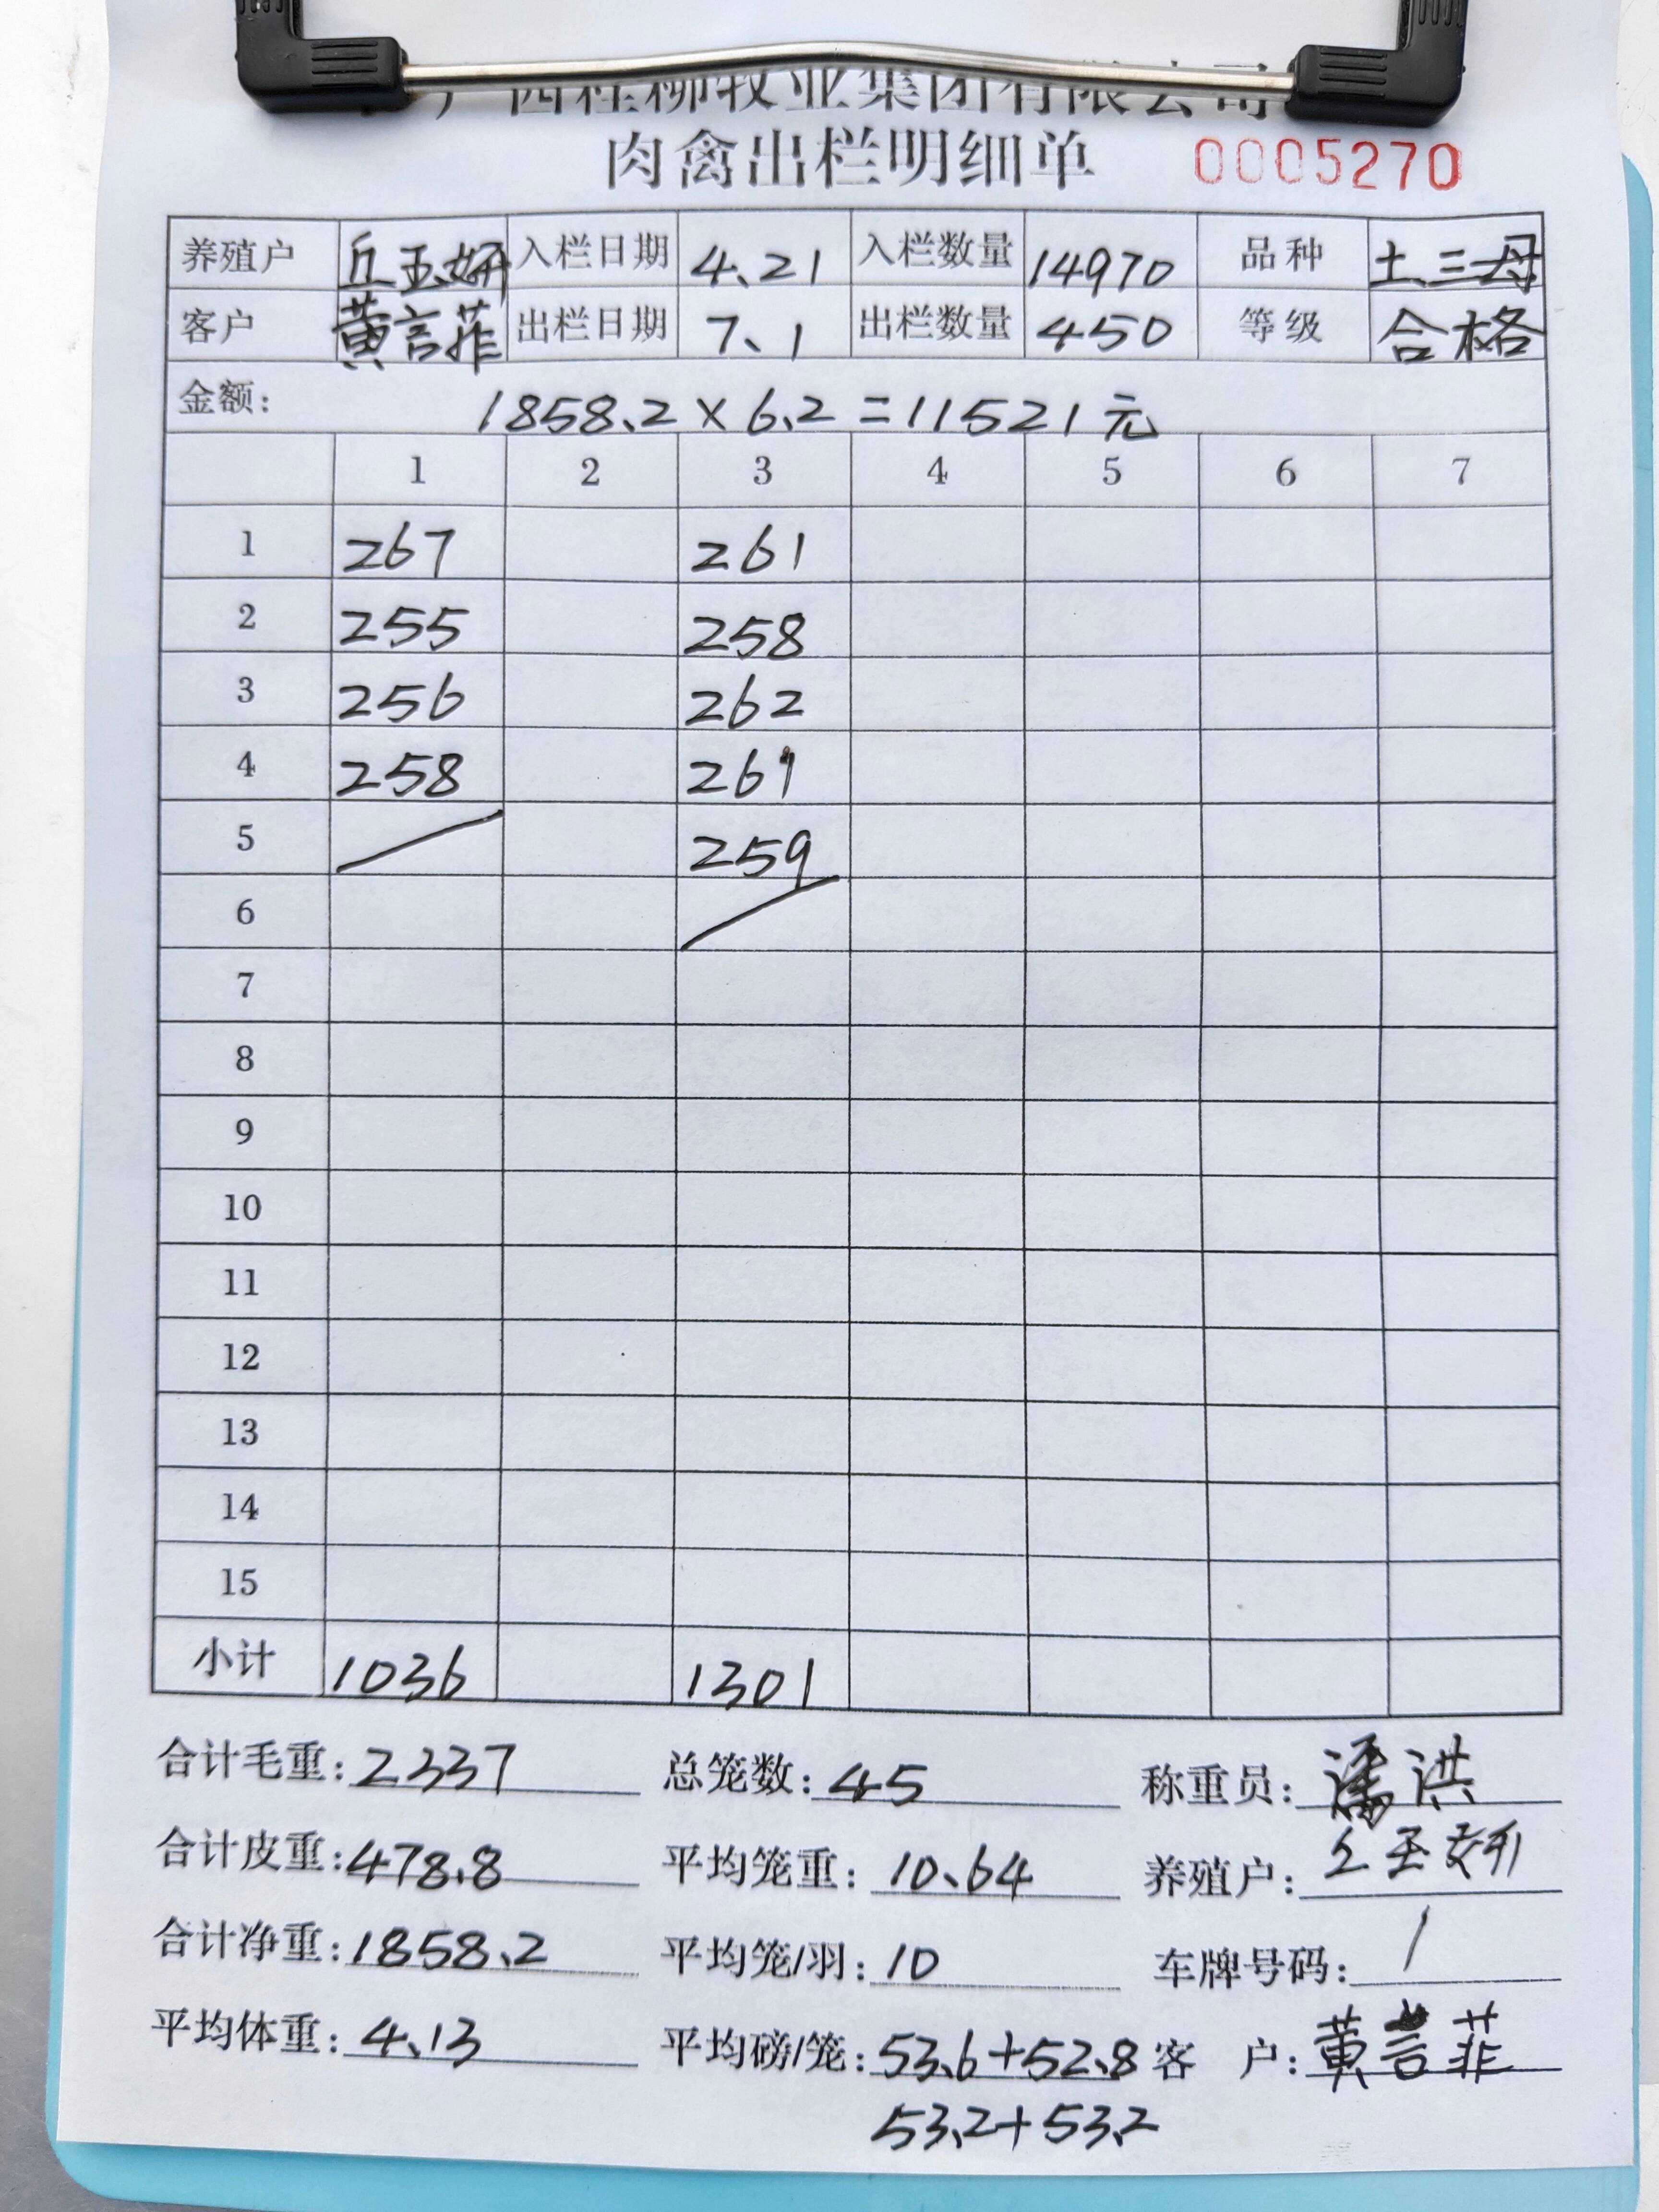 广西桂柳牧业集团有限公司
肉禽出栏明细单 0005270
养殖户 丘玉妍 入栏日期 4、21 入栏数量 14970 品种 土三母
客户 黄言菲 出栏日期 7、1 出栏数量 450 等级 合格
金额: 1858、2 × 6、2 = 11521元
1 2 3 4 5 6 7
1 267 261
2 255 258
3 256 262
4 258 261
5 259
6
7
8
9
10
11
12
13
14
15
小计 1036 1301
合计毛重: 2337 总笼数: 45 称重员: 潘洪
合计皮重: 478.8 平均笼重: 10、64 养殖户: 丘玉妍
合计净重: 1858、2 平均笼/羽: 10 车牌号码: /
平均体重: 4、13 平均磅/笼: 53、6+52、8 客 户: 黄言菲
53、2+53、2